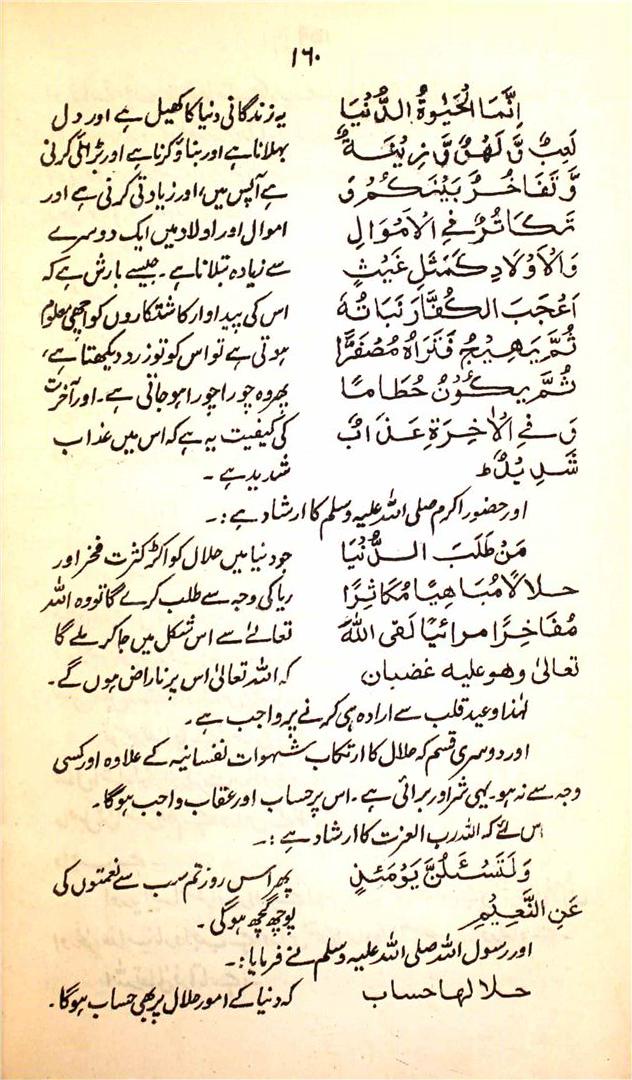 ۱۶۰
اِنَّمَا الْحَیٰوۃُ الدُّنْیَا
لَعِبٌ وَّ لَھْوٌ وَّ زِیْنَۃٌ
وَّ تَفَاخُرٌ بَیْنَکُمْ وَ
تَکَاثُرٌ فِی الْاَمْوَالِ
وَالْاَوْلَادِ کَمَثَلِ غَیْثٍ
اَعْجَبَ الْکُفَّارَ نَبَاتُہٗ
ثُمَّ یَھِیْجُ فَتَرَاہُ مُصْفَرًّا
ثُمَّ یَکُوْنُ حُطَامًا
وَ فِی الْاٰخِرَۃِ عَذَابٌ
شَدِیْدٌ ط
یہ زندگانی دنیا کا کھیل ہے اور دل
بہلانا ہے اور بناؤ کرنا ہے اور بڑائی کرنی
ہے آپس میں، اور زیادتی کرنی ہے اور
اموال اور اولاد میں ایک دوسرے
سے زیادہ بتلانا ہے۔ جیسے بارش ہے کہ
اس کی پیداوار کاشتکاروں کو اچھی معلوم
ہوتی ہے تو اس کو تو زرد دیکھتا ہے،
پھر وہ چورا چورا ہو جاتی ہے۔ اور آخرت
کی کیفیت یہ ہے کہ اس میں عذاب
شدید ہے۔
اور حضور اکرم صلی اللہ علیہ وسلم کا ارشاد ہے :۔
مَنْ طَلَبَ الدُّنْیَا
حلالًا مُبَاھِیًا مُکَاثِرًا
مُفَاخِرًا مرائیًا لَقی اللّٰہَ
تعالیٰ وھو علیہ غضبان
جو دنیا میں حلال کو اکڑ کثرت فخر اور
ریا کی وجہ سے طلب کرے گا تو وہ اللہ
تعالےٰ سے اس شکل میں جا کر ملے گا
کہ اللہ تعالیٰ اس پر ناراض ہوں گے۔
لہٰذا وعید قلب سے ارادہ ہی کرنے پر واجب ہے۔
اور دوسری قسم کہ حلال کا ارتکاب شہوات نفسانیہ کے علاوہ اور کسی
وجہ سے نہ ہو۔ یہی شر اور برائی ہے۔ اس پر حساب اور عقاب واجب ہوگا۔
اس لئے کہ اللہ رب العزت کا ارشاد ہے :۔
وَ لَتُسْئَلُنَّ یَوْمَئِذٍ
عَنِ النَّعِیْمِ
پھر اس روز تم سب سے نعمتوں کی
پوچھ گچھ ہوگی۔
اور رسول اللہ صلی اللہ علیہ وسلم نے فرمایا :۔
حلالھا حساب
کہ دنیا کے امور حلال پر بھی حساب ہوگا۔